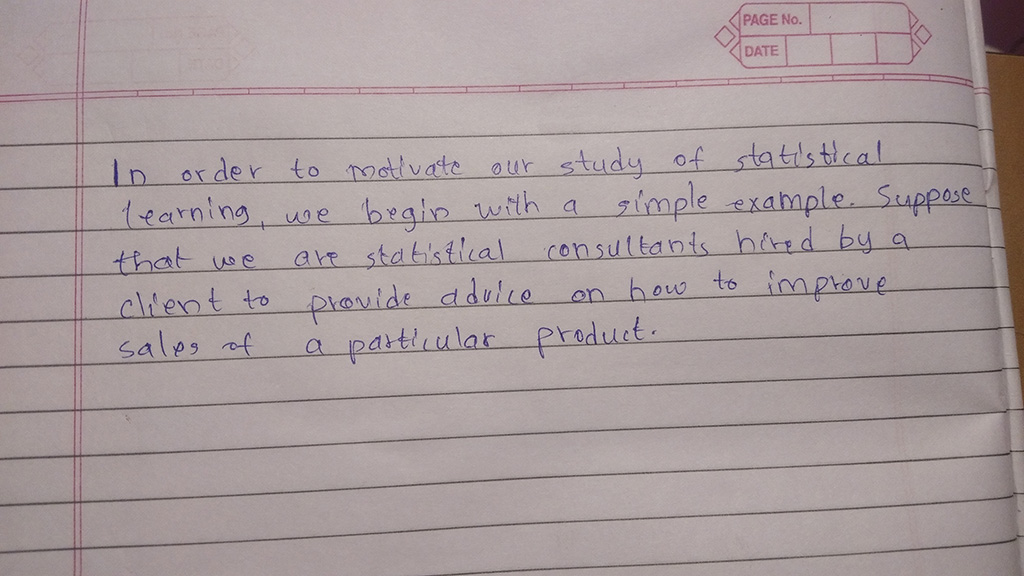 PAGE No.
DATE
In order to motivate our study of statistical
learning, we begin with a simple example. Suppose
that we are statistical consultants hired by a
client to provide advice on how to improve
sales of a particular product.